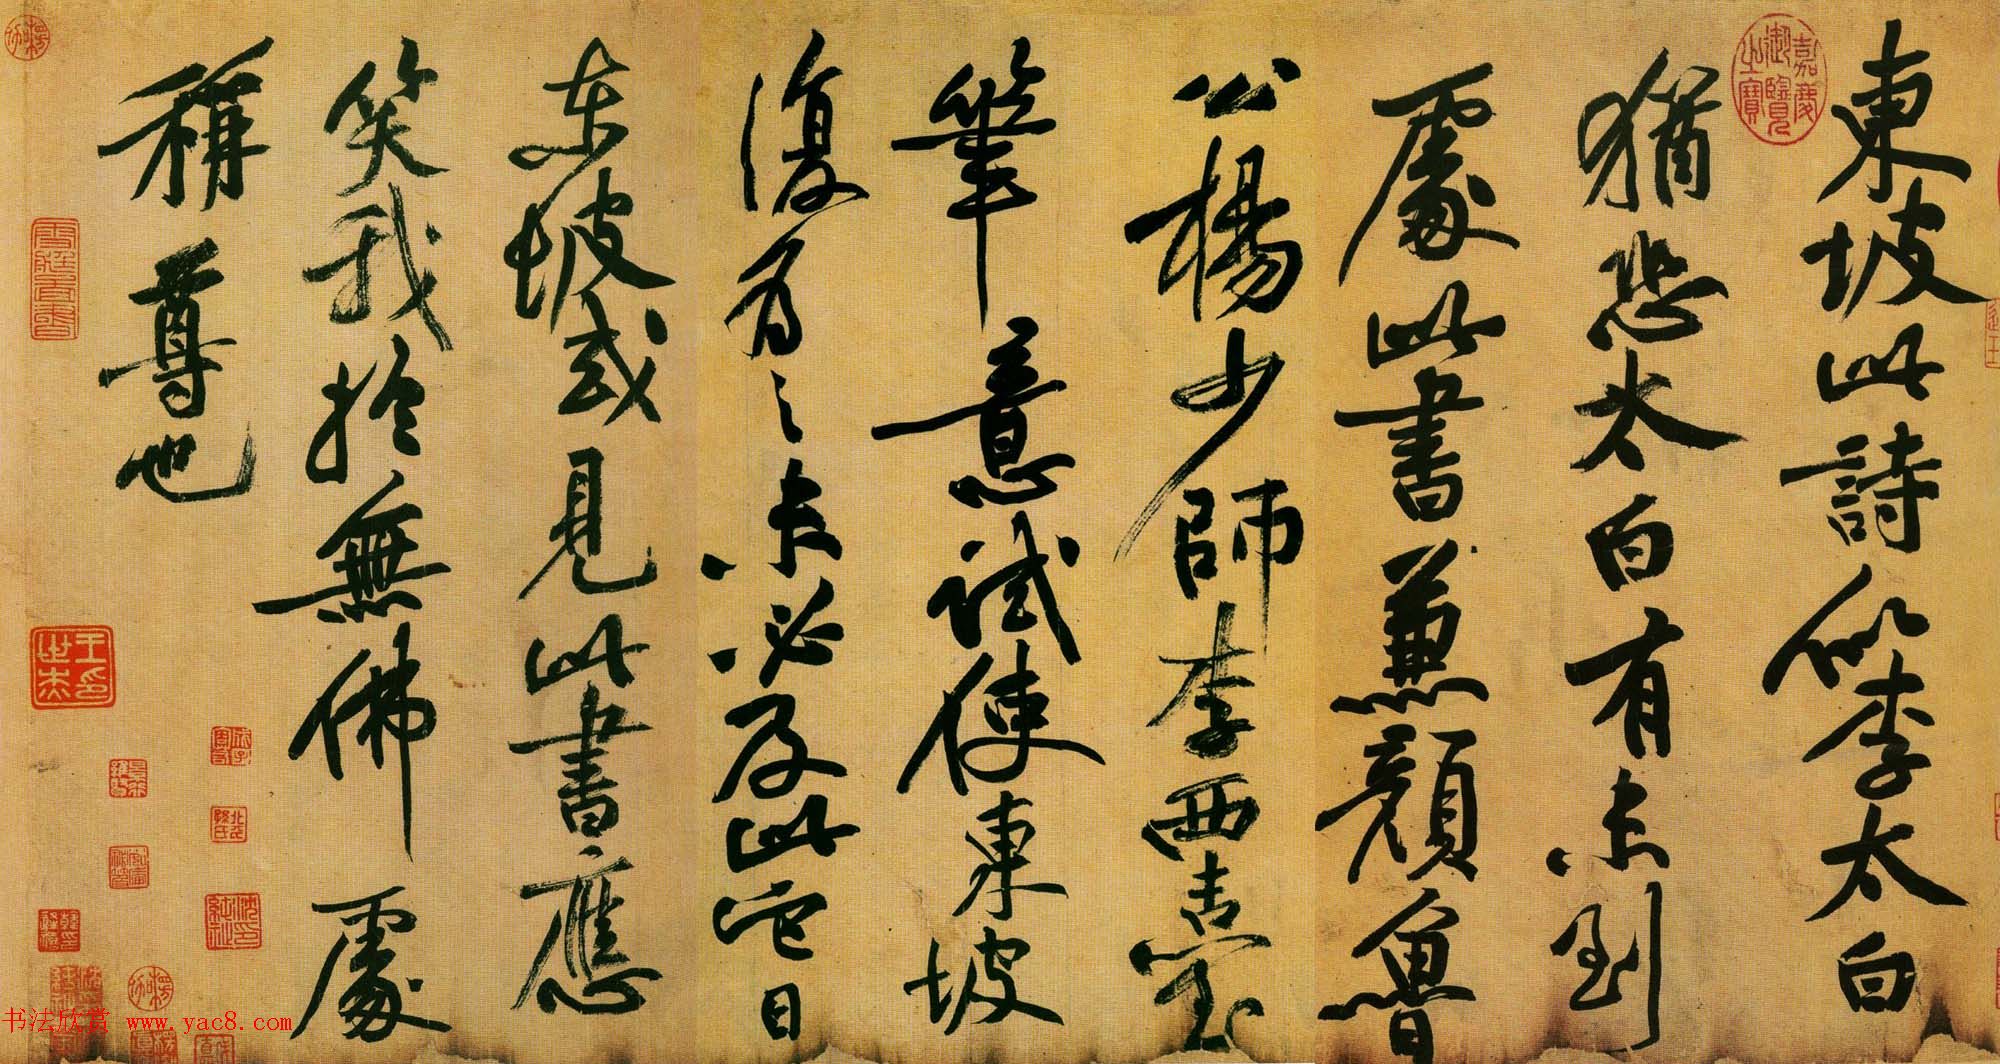 東坡此詩似李太白
猶恐太白有未到
處此書兼顏魯
公楊少師李西臺
筆意試使東坡
復為之未必及此它日
東坡或見此書應
笑我於無佛處
稱尊也
嘉慶御覽之寶
王世杰印
书法欣赏 www.yac8.com